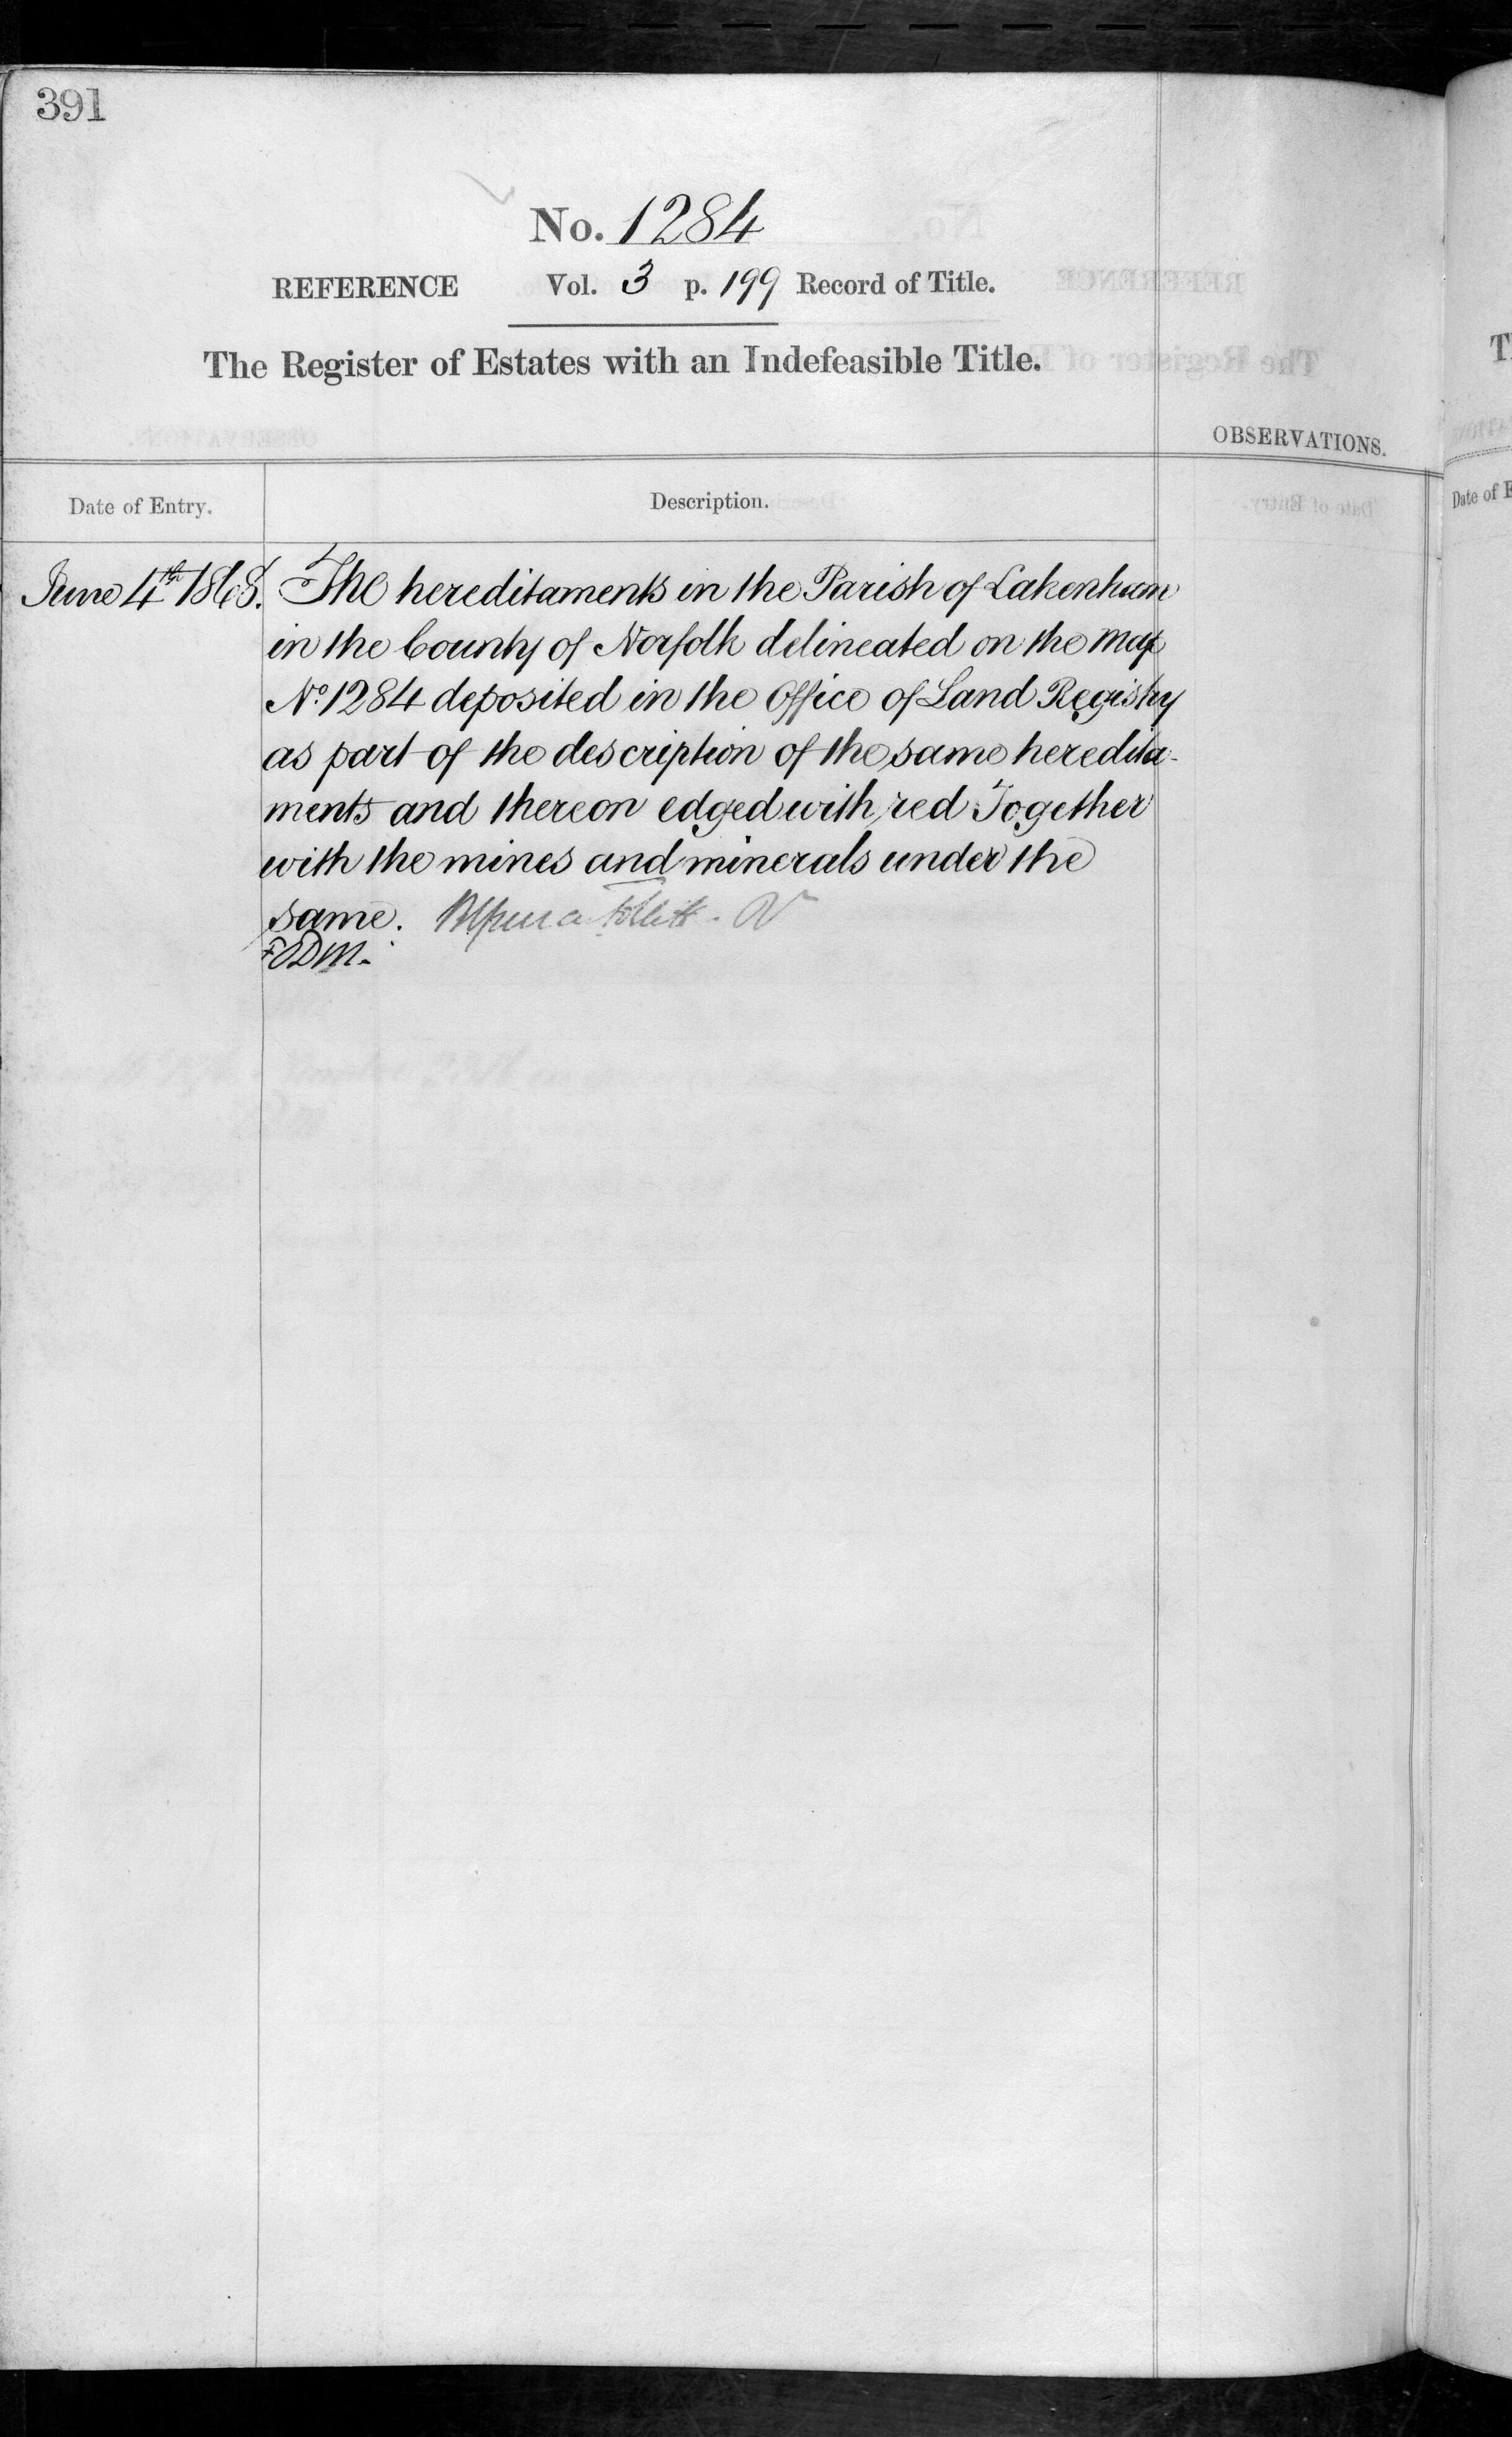 391
No. 1284
REFERENCE Vol. 3 p. 199 Record of Title.
The Register of Estates with an Indefeasible Title.
OBSERVATIONS.
Date of Entry. Description.
June 4th 1868. The hereditaments in the Parish of Lakenham
in the County of Norfolk delineated on the Map
No. 1284 deposited in the Office of Land Registry
as part of the description of the same heredita-
ments and thereon edged with red Together
with the mines and minerals under the
same.
FODM.
Date of E